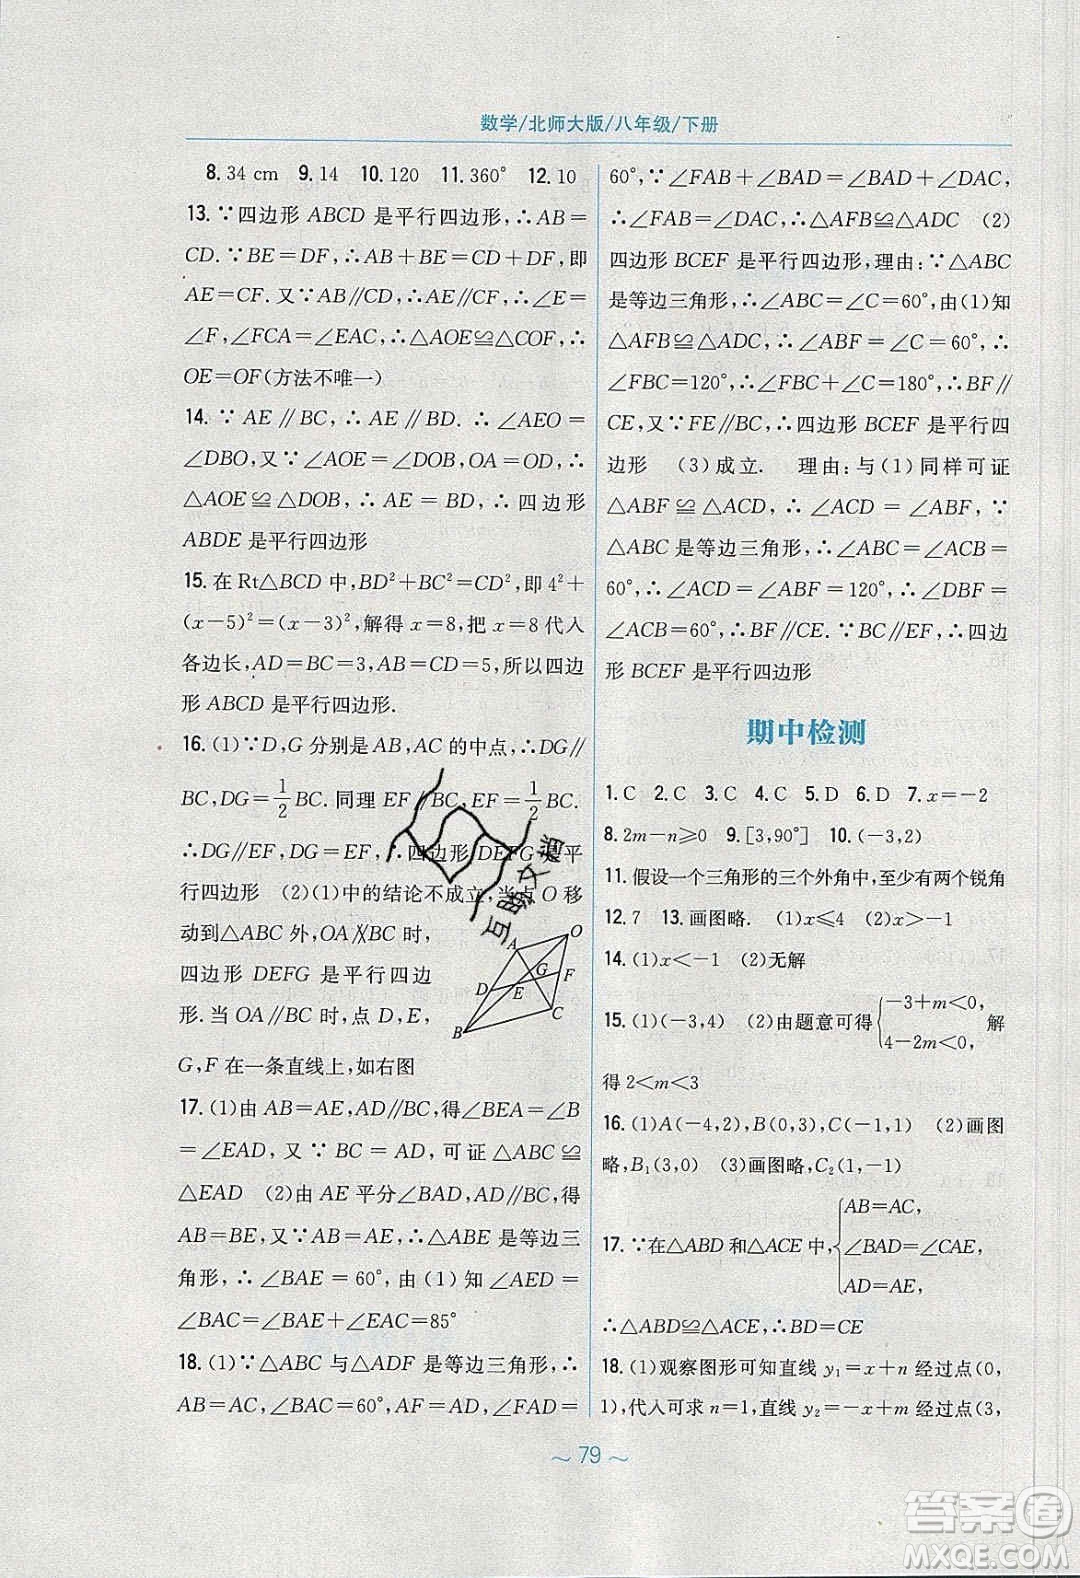 数学/北师大版/八年级/下册
8. 34 cm 9. 14 10. 120 11. 360° 12. 10
13. ∵四边形 ABCD 是平行四边形,∴AB=
CD. ∵BE=DF,∴AB+BE=CD+DF,即
AE=CF. 又∵AB∥CD,∴AE∥CF,∴∠E=
∠F,∠FCA=∠EAC,∴△AOE≌△COF,∴
OE=OF(方法不唯一)
14. ∵ AE∥BC,∴ AE∥BD. ∴ ∠AEO=
∠DBO,又∵∠AOE=∠DOB,OA=OD,∴
△AOE≌△DOB,∴ AE=BD,∴四边形
ABDE 是平行四边形
15. 在 Rt△BCD 中,BD²+BC²=CD²,即 4²+
(x-5)²=(x-3)²,解得 x=8,把 x=8 代入
各边长,AD=BC=3,AB=CD=5,所以四边
形 ABCD 是平行四边形.
16. (1)∵D,G 分别是 AB,AC 的中点,∴DG∥
BC,DG=1/2 BC. 同理 EF∥BC,EF=1/2 BC.
∴DG∥EF,DG=EF,∴四边形 DEFG 是平
行四边形 (2)(1)中的结论不成立,当点 O 移
动到△ABC 外,OA∦BC 时,
四边形 DEFG 是平行四边
形. 当 OA∥BC 时,点 D,E,
G,F 在一条直线上,如右图
A O G F D E C B
17. (1)由 AB=AE,AD∥BC,得∠BEA=∠B
=∠EAD,又∵BC=AD,可证△ABC≌
△EAD (2)由 AE 平分∠BAD,AD∥BC,得
AB=BE,又∵AB=AE,∴△ABE 是等边三
角形,∴∠BAE=60°,由(1)知∠AED=
∠BAC=∠BAE+∠EAC=85°
18. (1)∵△ABC 与△ADF 是等边三角形,∴
AB=AC,∠BAC=60°,AF=AD,∠FAD=
60°,∵∠FAB+∠BAD=∠BAD+∠DAC,
∴∠FAB=∠DAC,∴△AFB≌△ADC (2)
四边形 BCEF 是平行四边形,理由:∵△ABC
是等边三角形,∴∠ABC=∠C=60°,由(1)知
△AFB≌△ADC,∴∠ABF=∠C=60°,∴
∠FBC=120°,∴∠FBC+∠C=180°,∴BF∥
CE,又∵FE∥BC,∴四边形 BCEF 是平行四
边形 (3)成立. 理由:与(1)同样可证
△ABF≌△ACD,∴∠ACD=∠ABF,∵
△ABC 是等边三角形,∴∠ABC=∠ACB=
60°,∴∠ACD=∠ABF=120°,∴∠DBF=
∠ACB=60°,∴BF∥CE. ∵BC∥EF,∴四边
形 BCEF 是平行四边形
期中检测
1. C 2. C 3. C 4. C 5. D 6. D 7. x=-2
8. 2m-n≥0 9. [3,90°] 10. (-3,2)
11. 假设一个三角形的三个外角中,至少有两个锐角
12. 7 13. 画图略. (1)x≤4 (2)x>-1
14. (1)x<-1 (2)无解
15. (1)(-3,4) (2)由题意可得{-3+m<0, 4-2m<0, 解
得 2<m<3
16. (1)A(-4,2),B(0,3),C(-1,1) (2)画图
略,B₁(3,0) (3)画图略,C₂(1,-1)
17. ∵在△ABD 和△ACE 中,{AB=AC, ∠BAD=∠CAE, AD=AE,
∴△ABD≌△ACE,∴BD=CE
18. (1)观察图形可知直线 y₁=x+n 经过点(0,
1),代入可求 n=1,直线 y₂=-x+m 经过点(3,
～ 79 ～
互助文消
答案圈
MXQE.COM